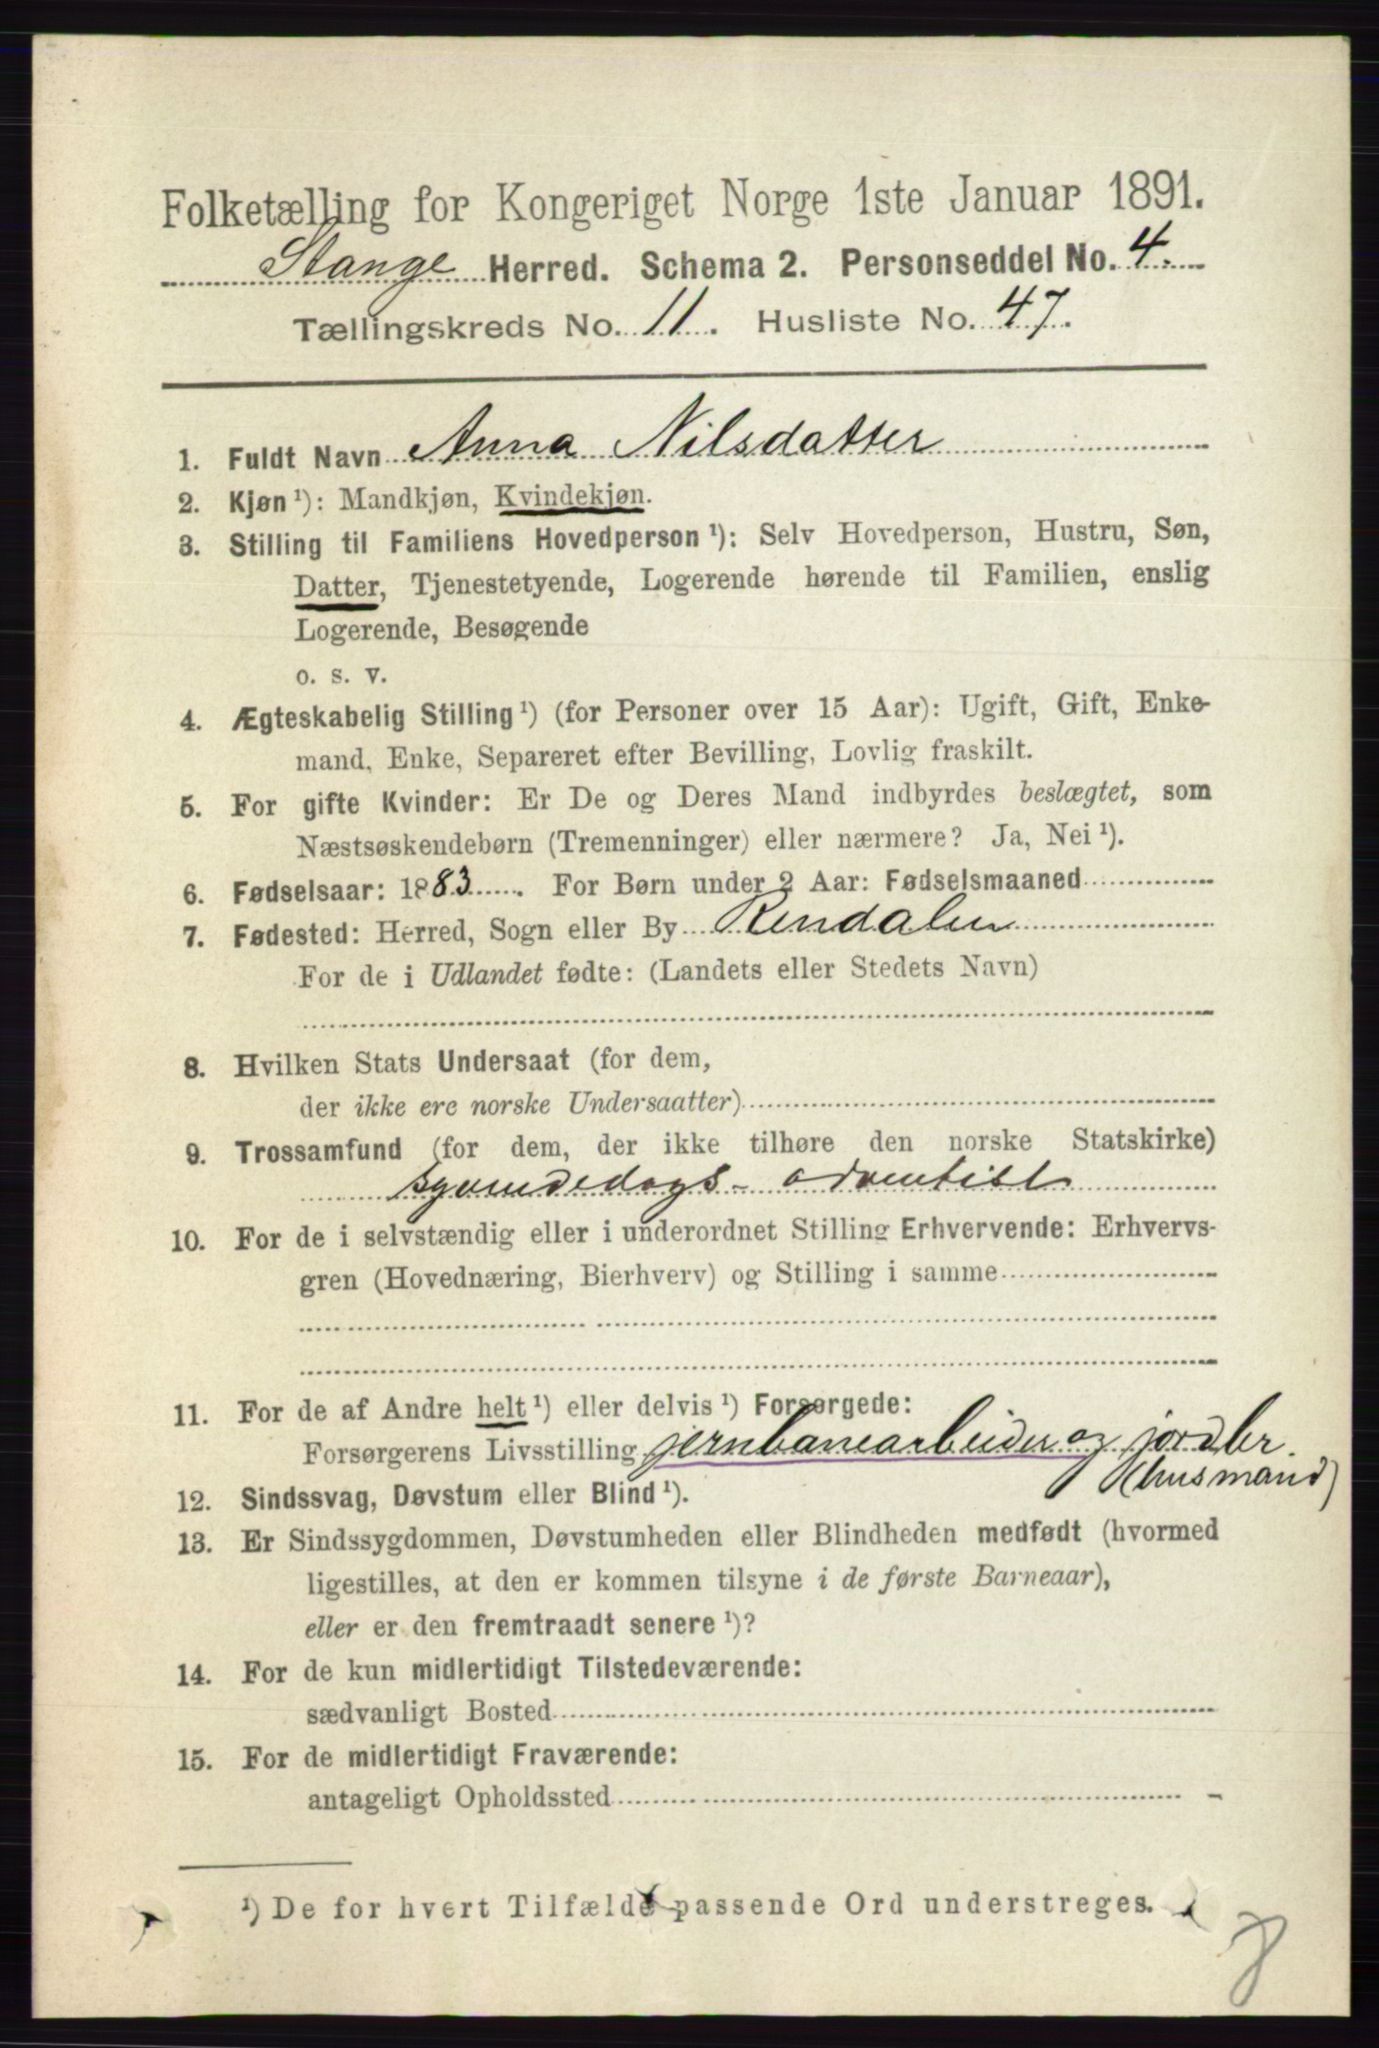 Folketælling for Kongeriget Norge 1ste Januar 1891.
Stange Herred. Schema 2. Personseddel No. 4.
Tællingskreds No. 11. Husliste No. 47.
1. Fuldt Navn Anna Nilsdatter
2. Kjøn ¹): Mandkjøn, Kvindekjøn.
3. Stilling til Familiens Hovedperson ¹): Selv Hovedperson, Hustru, Søn,
Datter, Tjenestetyende, Logerende hørende til Familien, enslig
Logerende, Besøgende
o. s. v.
4. Ægteskabelig Stilling ¹) (for Personer over 15 Aar): Ugift, Gift, Enke-
mand, Enke, Separeret efter Bevilling, Lovlig fraskilt.
5. For gifte Kvinder: Er De og Deres Mand indbyrdes beslægtet, som
Næstsøskendebørn (Tremenninger) eller nærmere? Ja, Nei ¹).
6. Fødselsaar: 1883. For Børn under 2 Aar: Fødselsmaaned
7. Fødested: Herred, Sogn eller By Rendalen
For de i Udlandet fødte: (Landets eller Stedets Navn)
8. Hvilken Stats Undersaat (for dem,
der ikke ere norske Undersaatter)
9. Trossamfund (for dem, der ikke tilhøre den norske Statskirke)
syvendedags-adventist
10. For de i selvstændig eller i underordnet Stilling Erhvervende: Erhvervs-
gren (Hovednæring, Bierhverv) og Stilling i samme
11. For de af Andre helt ¹) eller delvis ¹) Forsørgede:
Forsørgerens Livsstilling jernbanearbeider og jordbr.
(husmand)
12. Sindssvag, Døvstum eller Blind ¹).
13. Er Sindssygdommen, Døvstumheden eller Blindheden medfødt (hvormed
ligestilles, at den er kommen tilsyne i de første Barneaar),
eller er den fremtraadt senere ¹)?
14. For de kun midlertidigt Tilstedeværende:
sædvanligt Bosted
15. For de midlertidigt Fraværende:
antageligt Opholdssted
¹) De for hvert Tilfælde passende Ord understreges.